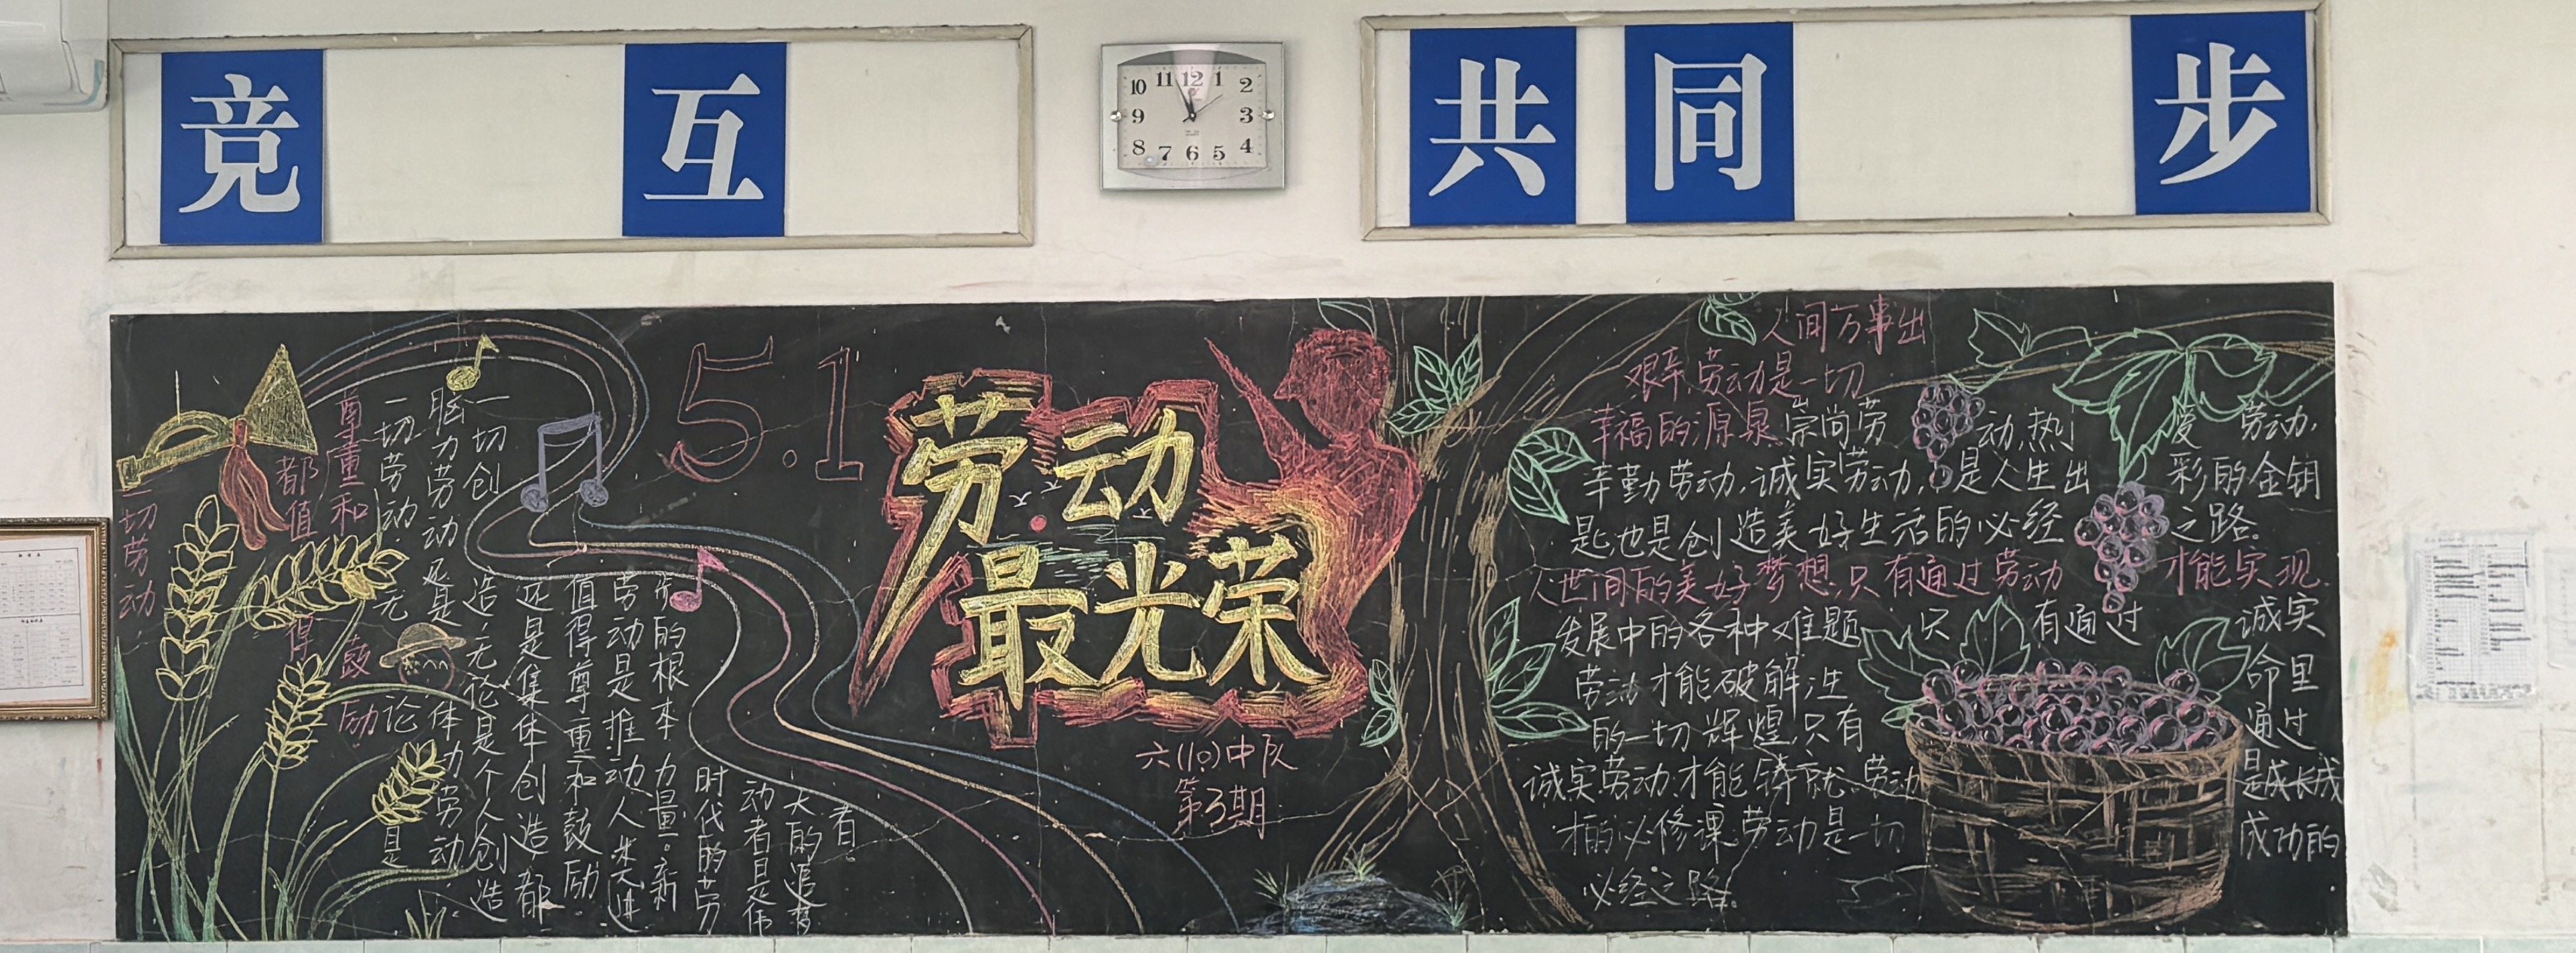 竞 互
共同 步
10 11 12 1 2
9 3
8 7 6 5 4
5.1
劳动
最光荣
六(10)中队
第3期
一切劳动,
都值得
尊重和鼓励。
一切劳动,无论是
脑力劳动还是体力劳动。
一切创造,无论是个人创造
还是集体创造,都
值得尊重和鼓励。
劳动是推动人类进
步的根本力量。新
时代的劳
动者是伟
大的追梦
者。
人间万事出
艰辛,劳动是一切
幸福的源泉,崇尚劳动,热爱劳动,
辛勤劳动,诚实劳动,是人生出彩的金钥
匙也是创造美好生活的必经之路。
人世间的美好梦想,只有通过劳动才能实现.
发展中的各种难题,只有通过诚实
劳动才能破解,生命里
的一切辉煌,只有通过
诚实劳动才能铸就.劳动是成长成
才的必修课,劳动是一切成功的
必经之路。